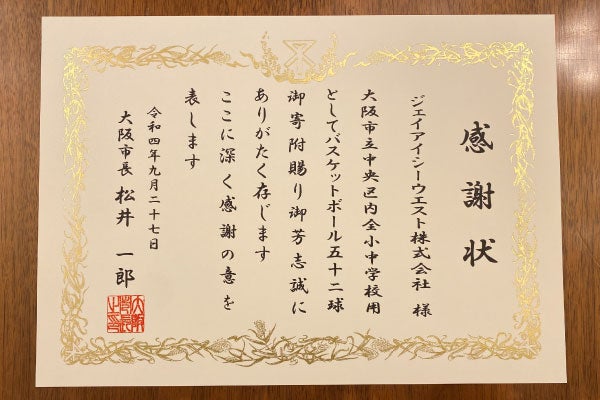 感謝状
ジェイアイシーウエスト株式会社 様
大阪市立中央区内全小中学校用
としてバスケットボール五十二球
御寄附賜り御芳志誠に
ありがたく存じます
ここに深く感謝の意を
表します
令和四年九月二十七日
大阪市長 松井 一郎